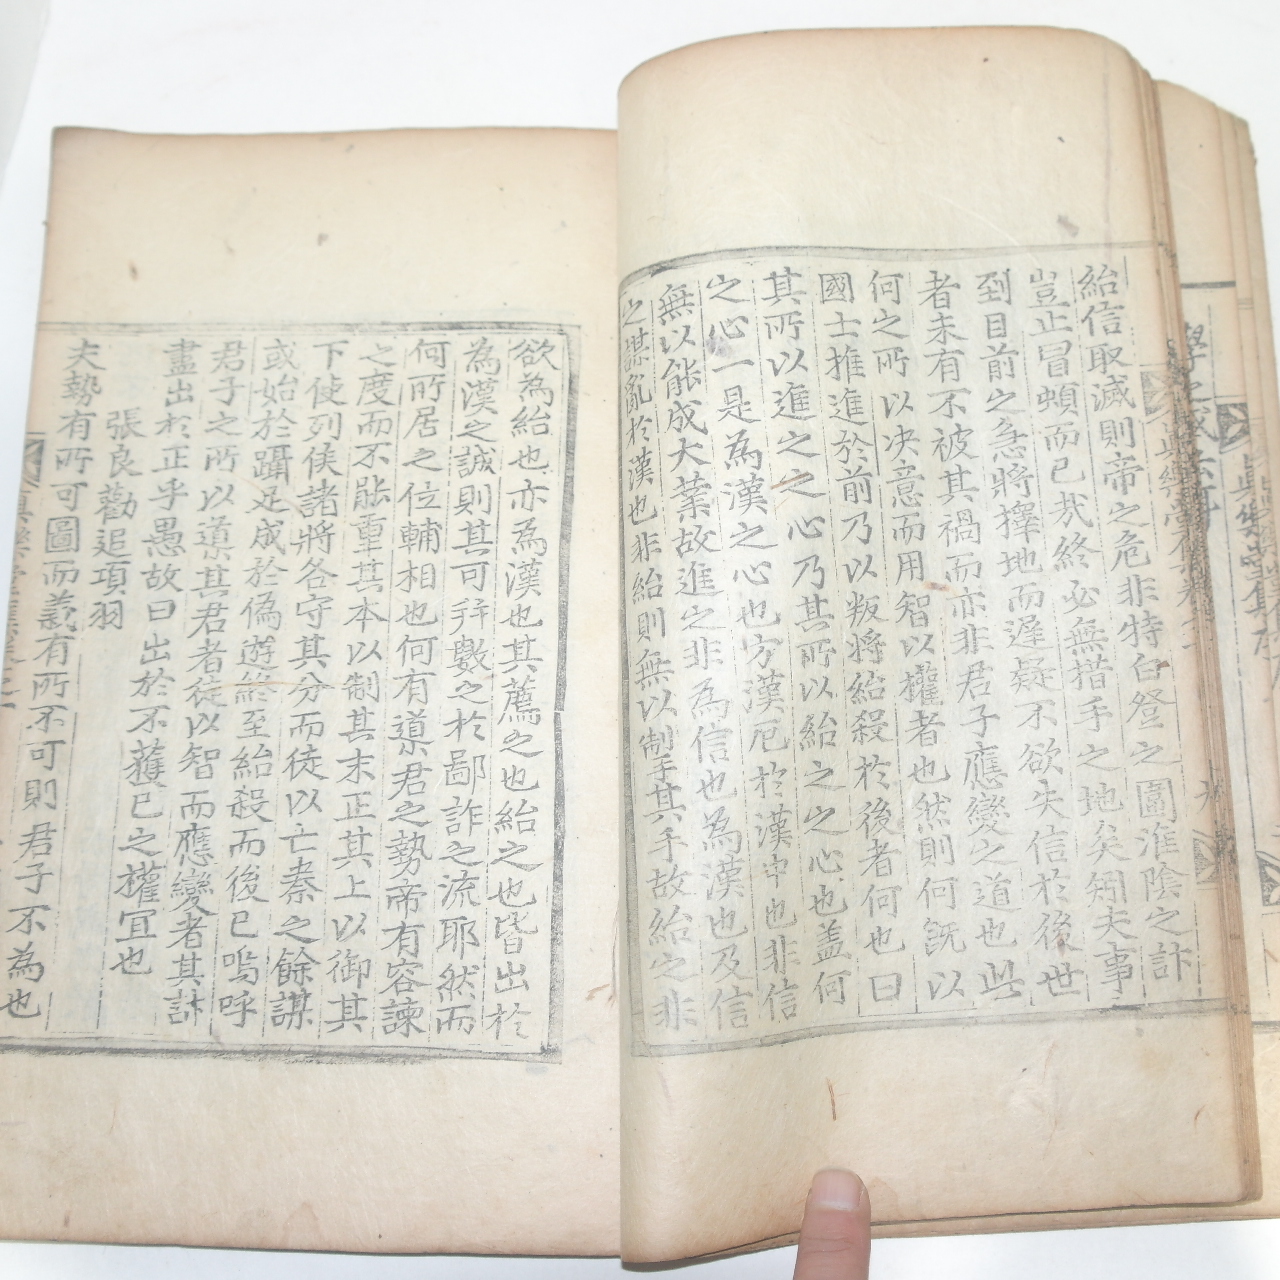 紿信取滅則帝之危非特白登之圍淮陰之計
豈止冒頓而已哉終必無措手之地矣矧夫事
到目前之急將擇地而遲疑不欲失信於後世
者未有不被其禍而亦非君子應變之道也此
何之所以决意而用智以權者也然則何旣以
國士推進於前乃以叛將紿殺於後者何也曰
其所以進之之心乃其所以紿之之心也盖何
之心一是為漢之心也方漢厄於漢中也非信
無以能成大業故進之非為信也為漢也及信
之謀亂於漢也非紿則無以制其手故紿之非
欲為紿也亦為漢也其薦之也紿之也皆出於
為漢之誠則其可拜數之於鄙詐之流耶然而
何所居之位輔相也何有道君之勢帝有容諫
之度而不能重其本以制其末正其上以御其
下使列侯諸將各守其分而徒以亡秦之餘謀
或始於躡足成於偽遊終至紿殺而後已嗚呼
君子之所以導其君者徒以智而應變者其計
盡出於正乎愚故曰出於不獲已之權宜也
張良勸追項羽
夫勢有所可圖而義有所不可則君子不為也